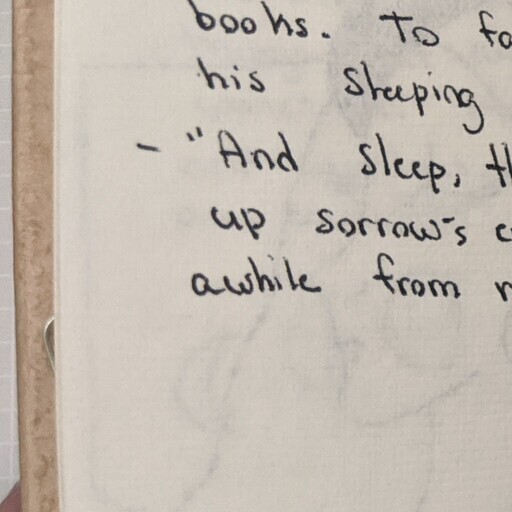 books. To
his sleeping
- "And sleep,
up sorrow's
awhile from